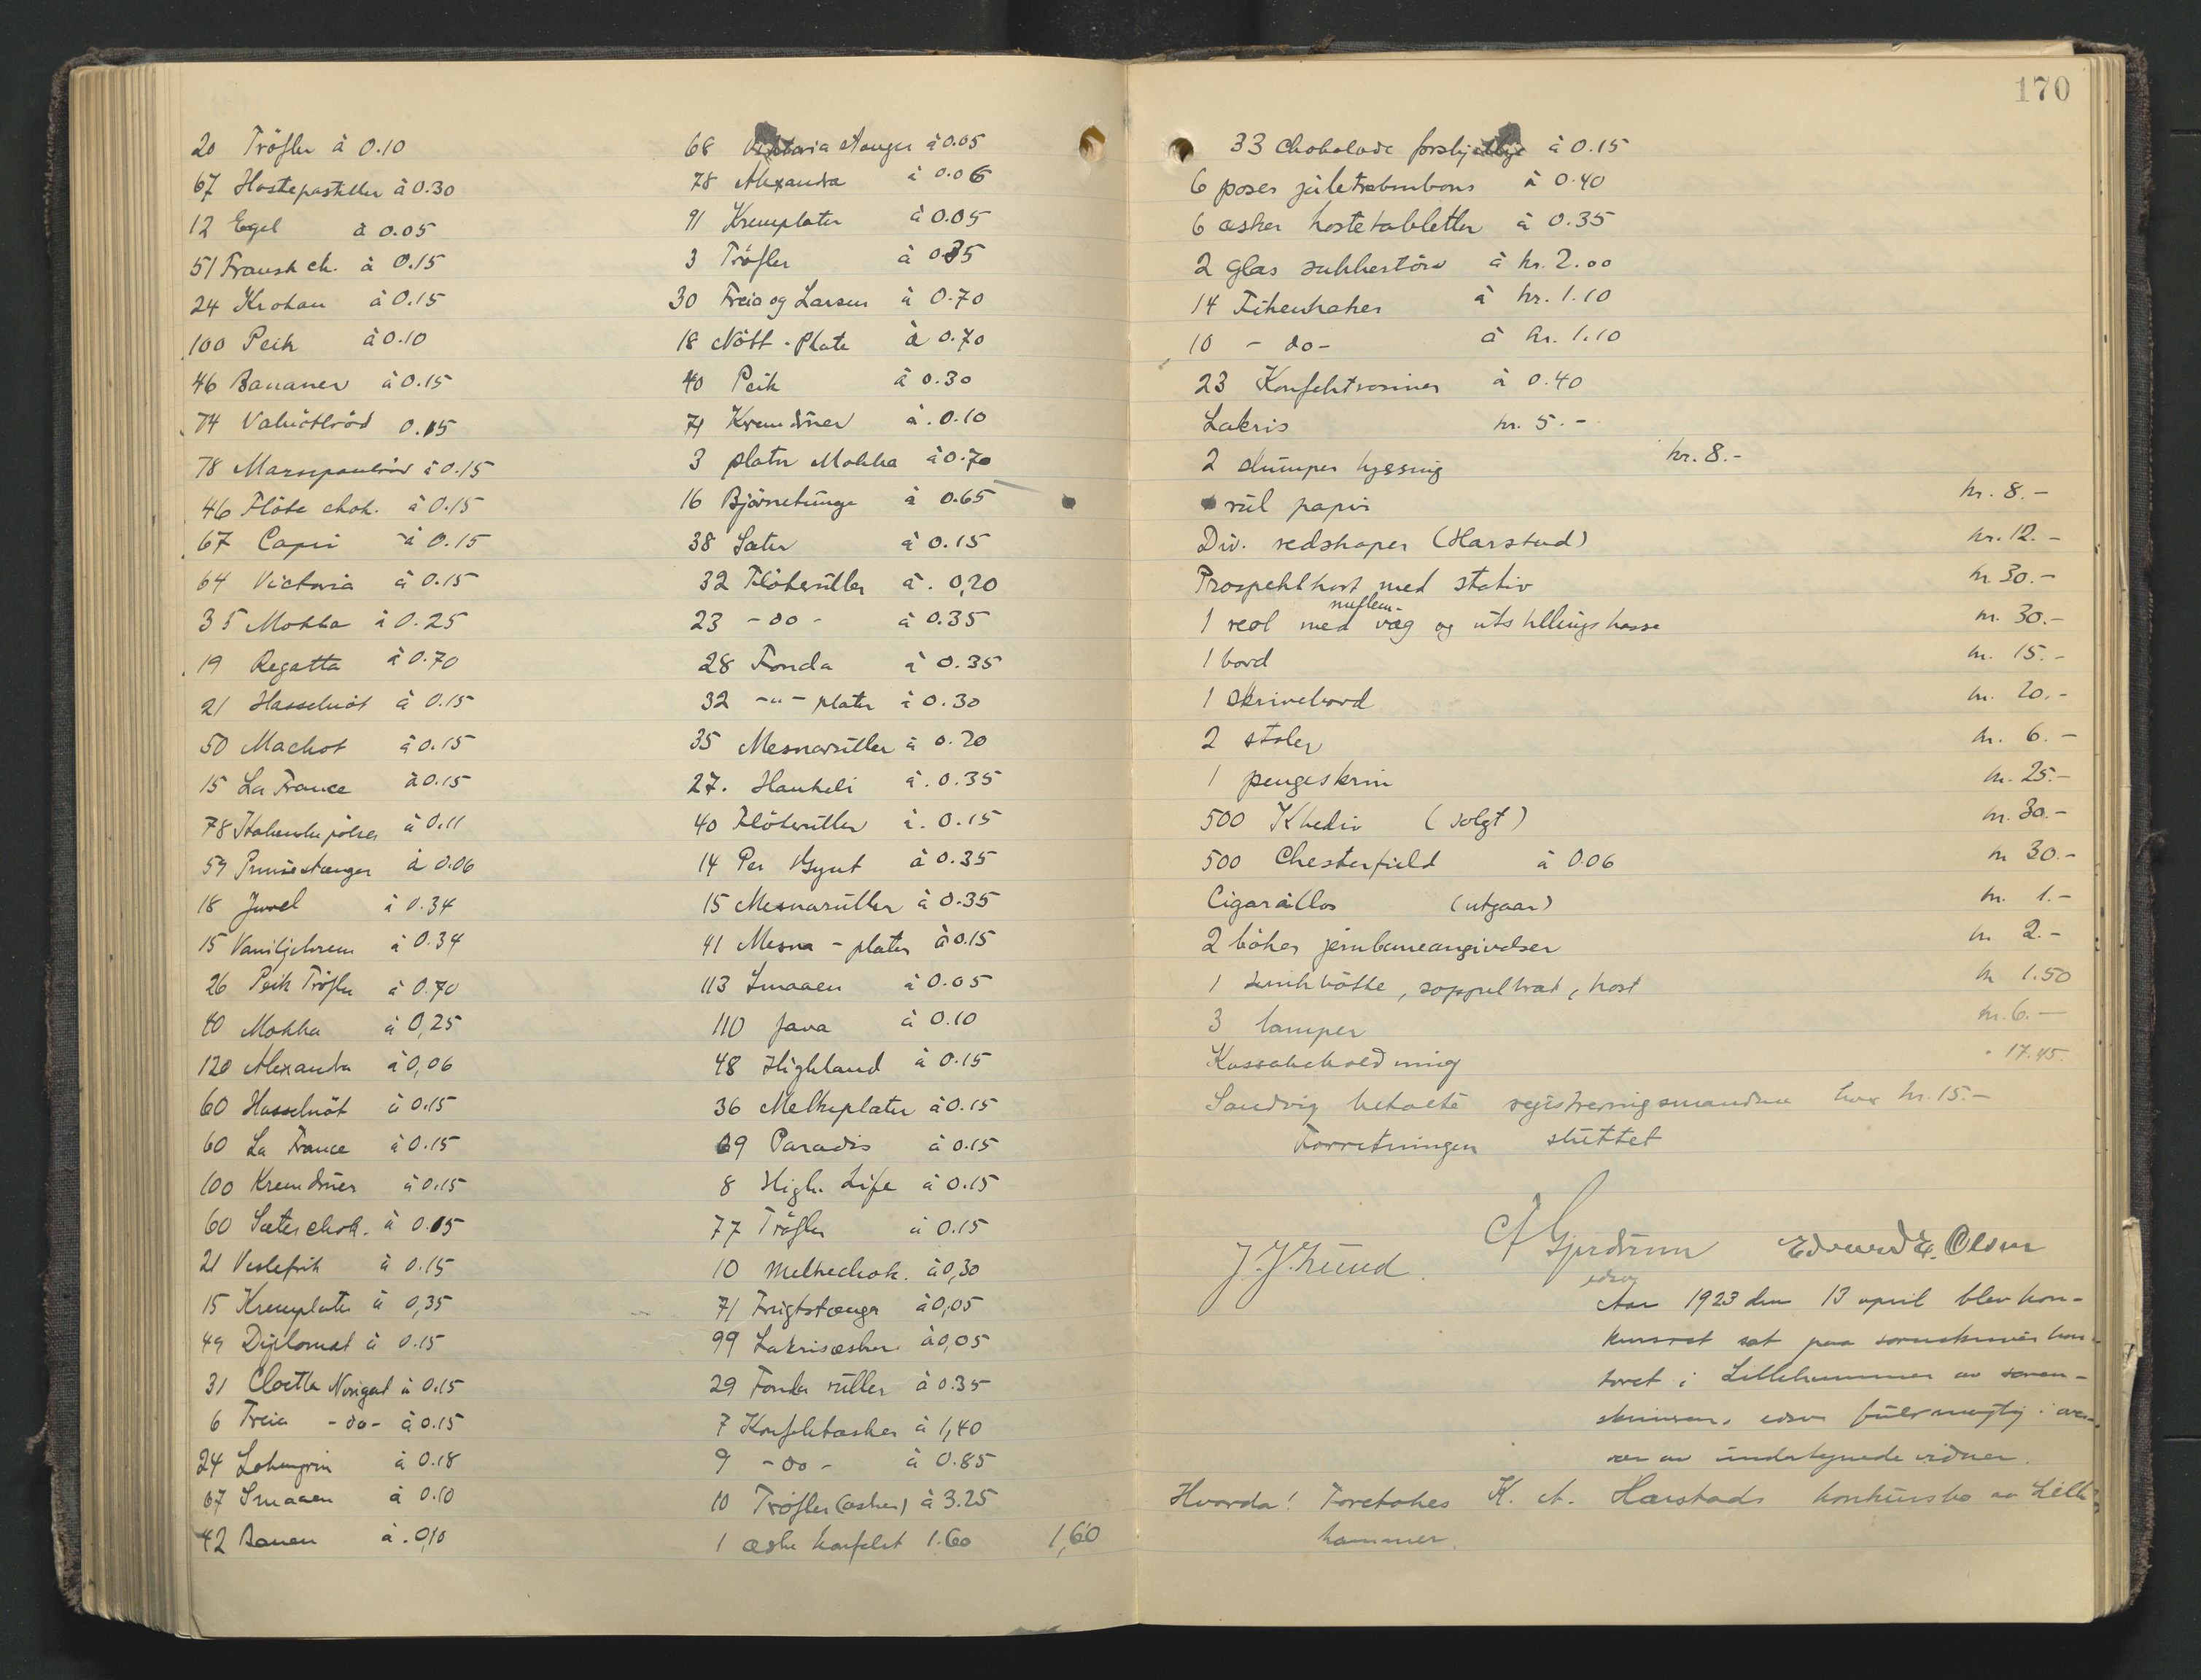 20 Tröfler à 0.10
67 Hostepastiller à 0.30
12 Egel à 0.05
51 Fransk ch. à 0.15
24 Krokan à 0.15
100 Peik à 0.10
46 Bananer à 0.15
74 Valnötbröd 0.15
78 Marsipanbröd à 0.15
46 Flöte chok. à 0.15
67 Capri à 0.15
64 Victoria à 0.15
35 Mokka à 0.25
19 Regatta à 0.70
21 Hasselnöt à 0.15
50 Machot à 0.15
15 La France à 0.15
78 Italienske pölser à 0.11
59 stænger à 0.06
18 Juvel à 0.34
15 Vaniljekrem à 0.34
26 Peik Tröfler à 0.70
40 Mokka à 0,25
120 Alexandra à 0,06
60 Hasselnöt à 0.15
60 La France à 0.15
100 Kremdruer à 0.15
60 Sæter chok. à 0.15
21 Veslefrik à 0.15
15 Kremplater à 0,35
49 Diplomat à 0.15
31 Cloetta Nougat à 0.15
6 Freia -do- à 0.15
24 Lohengrin à 0.18
67 Smaaen à 0.10
42 Banan à 0,10
68 Viktoria stanger à 0.05
78 Alexandra à 0.06
91 Kremplater à 0.05
3 Tröfler à 0.35
30 Freia og Larsen à 0.70
18 Nött-Plate à 0.70
40 Peik à 0.30
71 Kremdruer à 0.10
3 plater Mokka à 0.70
16 Björnetunge à 0.65
38 Sæter à 0.15
32 Flöteruller à 0,20
23 -do- à 0.35
28 Fonda à 0.35
32 -"- plater à 0.30
35 Mesnaruller à 0.20
27. Haukeli à 0.35
40 Flöteruller à 0.15
14 Per Gynt à 0.35
15 Mesnaruller à 0.35
41 Mesna-plater à 0.15
113 Smaaen à 0.05
110 Java à 0.10
48 Highland à 0.15
36 Melkeplater à 0.15
69 Paradis à 0.15
8 High Life à 0.15
77 Tröfler à 0.15
10 Melkechok. à 0,30
71 Frugtstænger à 0,05
99 Lakrisæsker à 0,05
29 Fonda ruller à 0.35
7 Konfektæsker à 1,40
9 -do- à 0.85
10 Tröfler (æsker) à 3.25
1 æske konfekt 1.60 1,60
170
33 Chokolade forskjellige à 0.15
6 poser juletrebonbons à 0.40
6 æsker hostetabletter à 0.35
2 glas sukkertöi à kr. 2.00
14 Fikenkaker à kr. 1.10
10 -do- à kr. 1.10
23 Konfektrosiner à 0.40
Lakris kr. 5.-
2 klumper hyssing kr. 8.-
rul papir kr. 8.-
Div. redskaper (Harstad) kr. 12.-
Prospektkort med stativ kr 30.-
1 reol med mellem- væg og utstillingskasse kr. 30.-
1 bord kr. 15.-
1 skrivebord kr. 20.-
2 stoler kr. 6.-
1 pengeskrin kr. 25.-
500 Khediv (solgt) kr. 30.-
500 Chesterfield à 0.06 kr 30.-
Cigarillos (utgaar) kr. 1.-
2 böker jernbaneangivelser kr 2.-
1 sinkbötte, soppelbræt, kost kr 1.50
3 lamper kr. 6.-
Kassabeholdning " 17.45
Sandvig betalte registreringsmændene hver kr. 15.-
Forretningen sluttet
J. J. Grund. A Gjerdrum Edvard E. Olsen
edsv
Aar 1923 den 13 april blev kon-
kursret sat paa sorenskriverkon-
toret i Lillehammer av soren-
skriveren, edsv fuldmegtig i over-
vær av undertegnede vidner.
Hvorda! Foretokes K. A. Harstads konkursbo av Lille
hammer.